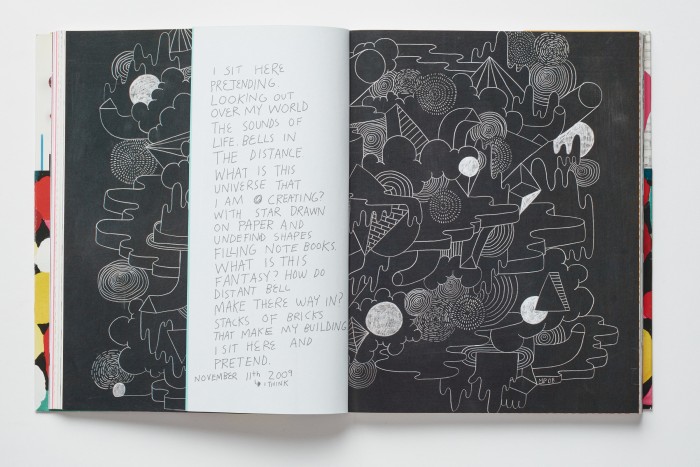 I SIT HERE
PRETENDING.
LOOKING OUT
OVER MY WORLD
THE SOUNDS OF
LIFE. BELLS IN
THE DISTANCE.
WHAT IS THIS
UNIVERSE THAT
I AM CREATING?
WITH STAR DRAWN
ON PAPER AND
UNDEFIND SHAPES
FILLING NOTE BOOKS.
WHAT IS THIS
FANTASY? HOW DO
DISTANT BELL
MAKE THERE WAY IN?
STACKS OF BRICKS
THAT MAKE MY BUILDING
I SIT HERE AND
PRETEND.
NOVEMBER 11th 2009
I THINK